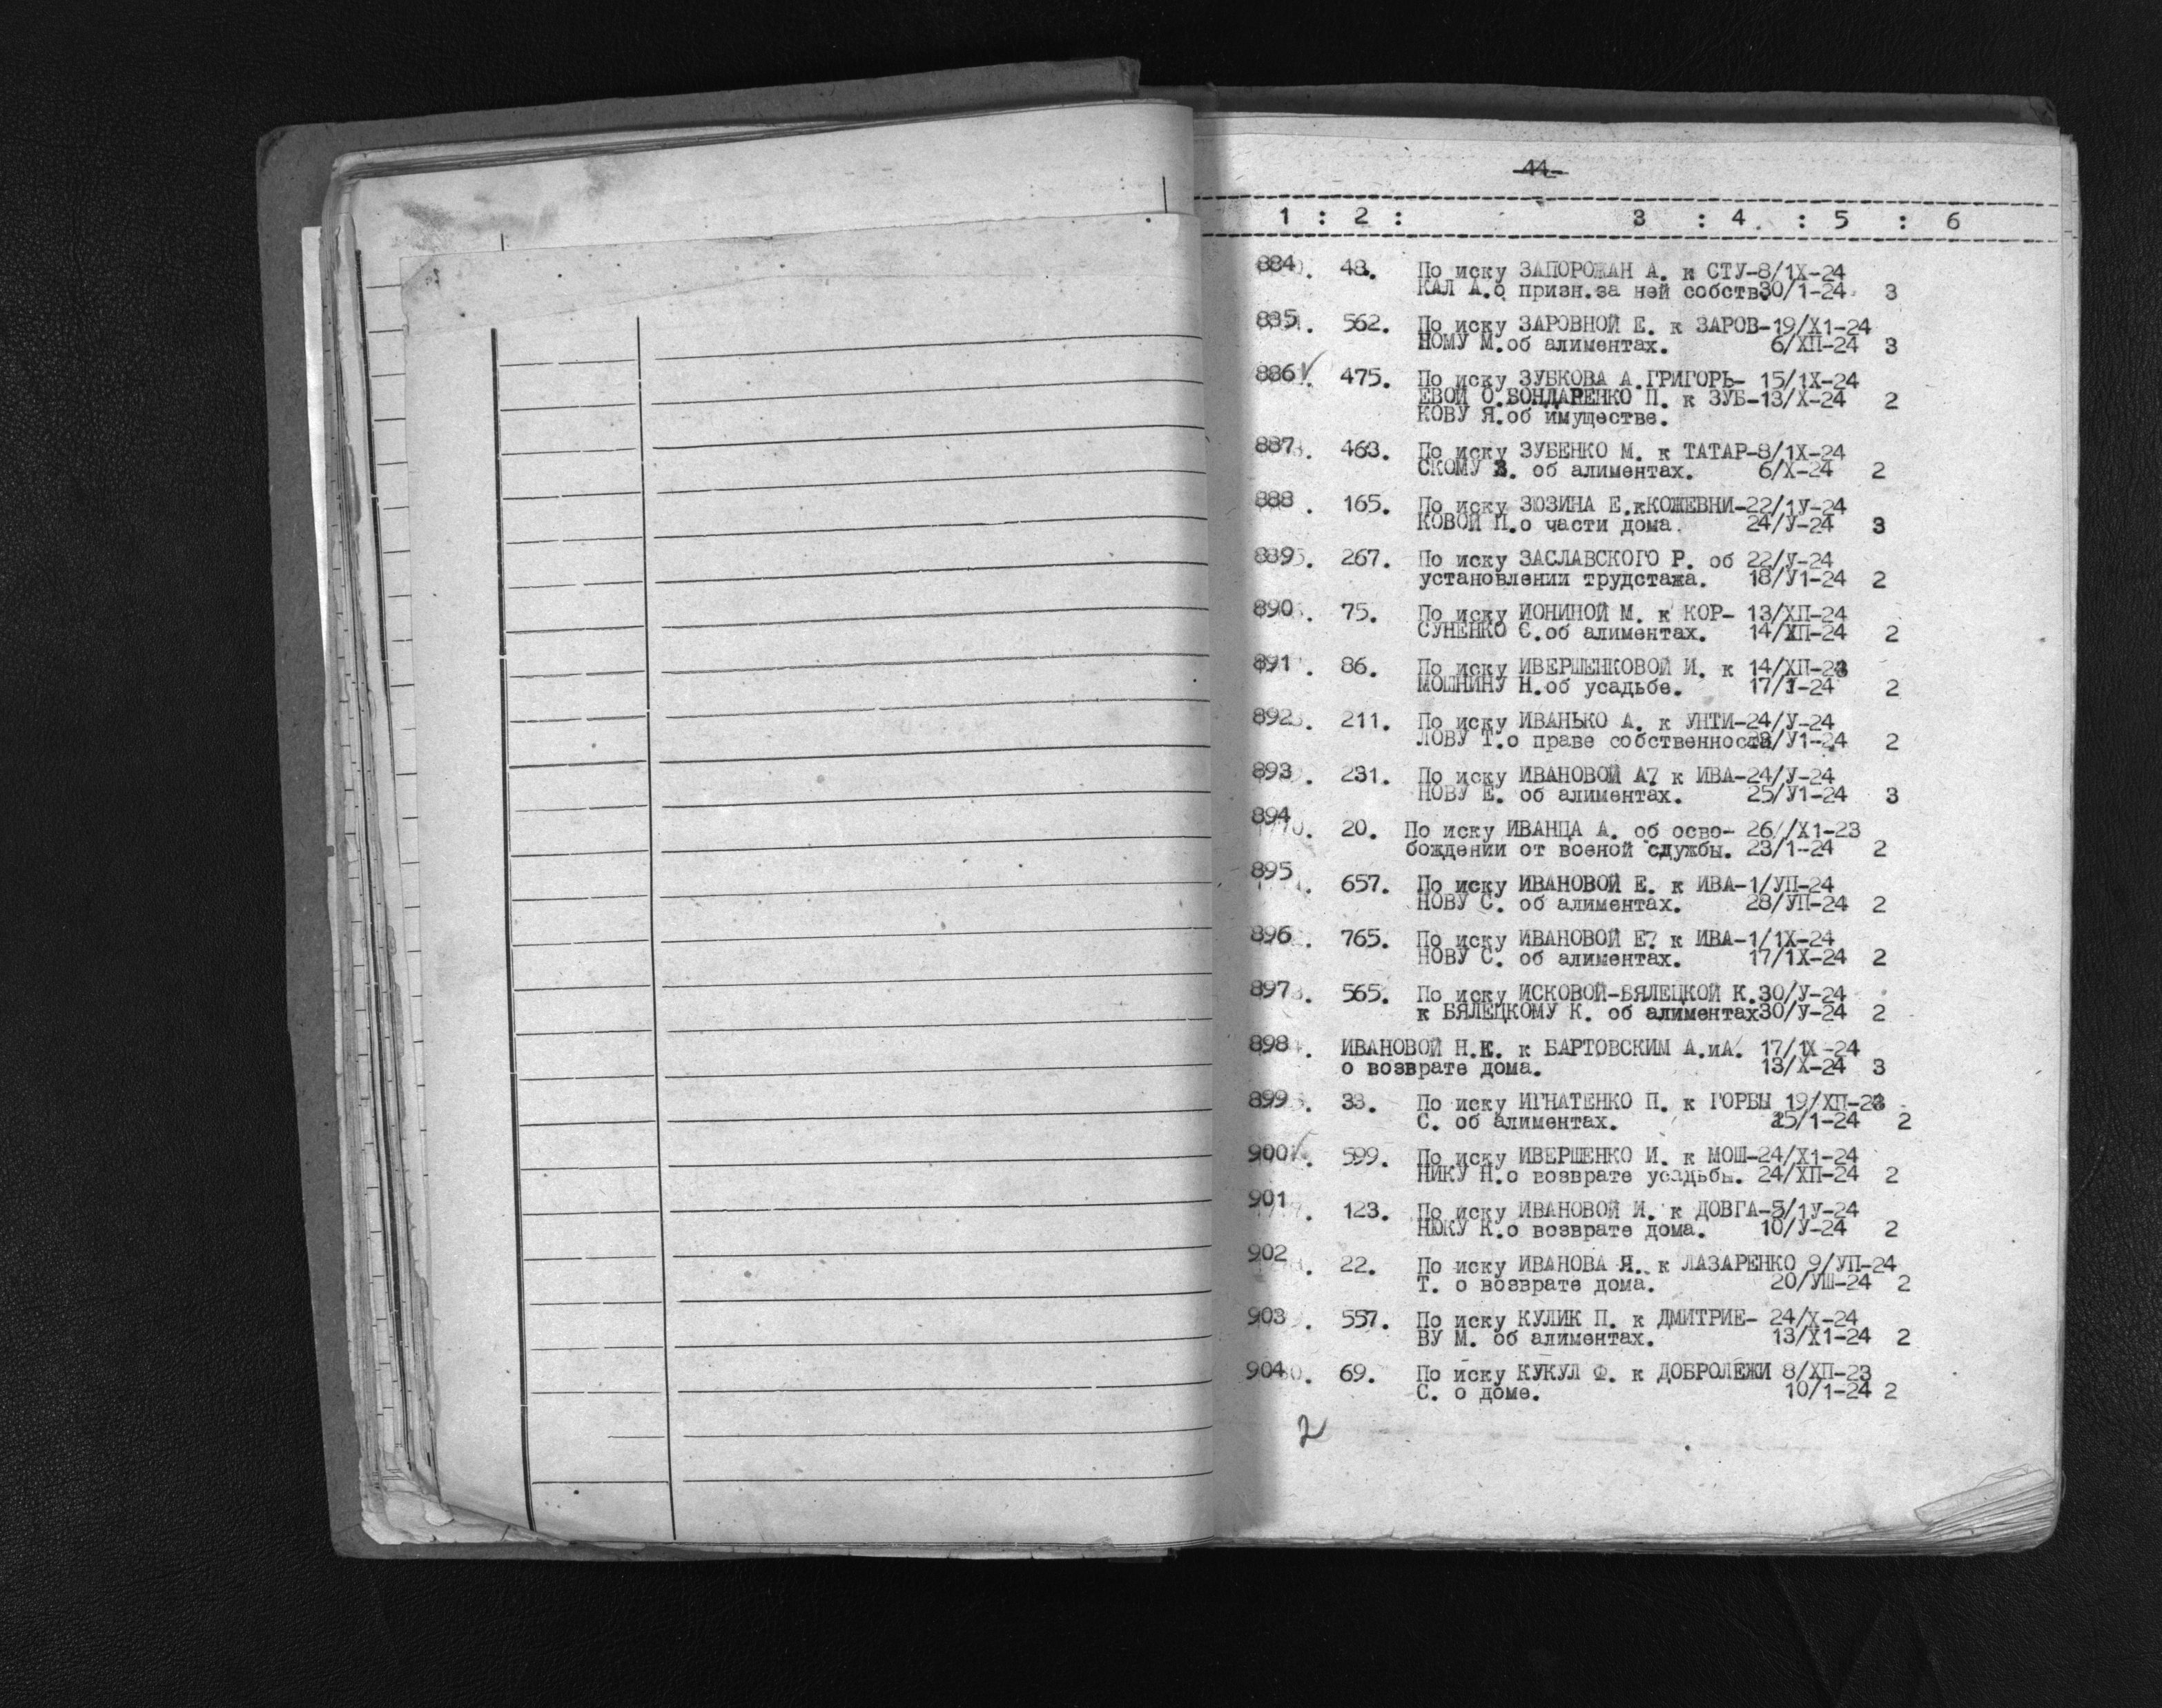 -44-
1 : 2 : 3 : 4. : 5 : 6
884. 48. По иску ЗАПОРОЖАН А. к СТУ-8/1Х-24
КАЛ А.о призн.за ней собств.30/1-24 3
885. 562. По иску ЗАРОВНОЙ Е. к ЗАРОВ-19/Х1-24
НОМУ М.об алиментах. 6/ХП-24 3
886. 475. По иску ЗУБКОВА А.ГРИГОРЬ- 15/1Х-24
ЕВОЙ О.БОНДАРЕНКО П. к ЗУБ-13/Х-24 2
КОВУ Я.об имуществе.
887. 463. По иску ЗУБЕНКО М. к ТАТАР-8/1Х-24
СКОМУ З. об алиментах. 6/Х-24 2
888. 165. По иску ЗЮЗИНА Е.кКОЖЕВНИ-22/1У-24
КОВОЙ П.о части дома. 24/У-24 3
889. 267. По иску ЗАСЛАВСКОГО Р. об 22/У-24
установлении трудстажа. 18/У1-24 2
890. 75. По иску ИОНИНОЙ М. к КОР- 13/ХП-24
СУНЕНКО С.об алиментах. 14/ХП-24 2
891. 86. По иску ИВЕРШЕНКОВОЙ И. к 14/ХП-23
МОШНИНУ Н.об усадьбе. 17/1-24 2
892. 211. По иску ИВАНЬКО А. к УНТИ-24/У-24
ЛОВУ Т.о праве собственности /У1-24 2
893. 231. По иску ИВАНОВОЙ А7 к ИВА-24/У-24
НОВУ Е. об алиментах. 25/У1-24 3
894. 20. По иску ИВАНЦА А. об осво- 26/Х1-23
бождении от военой службы. 23/1-24 2
895. 657. По иску ИВАНОВОЙ Е. к ИВА-1/УП-24
НОВУ С. об алиментах. 28/УП-24 2
896. 765. По иску ИВАНОВОЙ Е7 к ИВА-1/1Х-24
НОВУ С. об алиментах. 17/1Х-24 2
897. 565. По иску ИСКОВОЙ-БЯЛЕЦКОЙ К.30/У-24
к БЯЛЕЦКОМУ К. об алиментах30/У-24 2
898. ИВАНОВОЙ Н.Е. к БАРТОВСКИМ А.иА. 17/1Х-24
о возврате дома. 13/Х-24 3
899. 33. По иску ИГНАТЕНКО П. к ГОРБЫ 19/ХП-23
С. об алиментах. 15/1-24 2
900. 599. По иску ИВЕРШЕНКО И. к МОШ-24/Х1-24
НИКУ Н.о возврате усадьбы. 24/ХП-24 2
901. 123. По иску ИВАНОВОЙ И. к ДОВГА-5/1У-24
НЮКУ К.о возврате дома. 10/У-24 2
902. 22. По иску ИВАНОВА Я. к ЛАЗАРЕНКО 9/УП-24
Т. о возврате дома. 20/УШ-24 2
903. 557. По иску КУЛИК П. к ДМИТРИЕ- 24/Х-24
ВУ М. об алиментах. 13/Х1-24 2
904. 69. По иску КУКУЛ Ф. к ДОБРОЛЕЖИ 8/ХП-23
С. о доме. 10/1-24 2
2